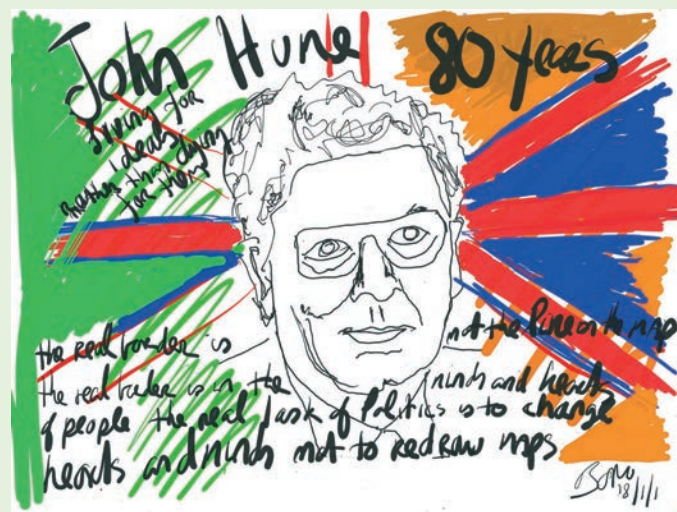 John Hume 80 years
living for
ideals
rather than dying
for them
the real border is not the line on the map
the real border is in the minds and hearts
of people the real task of Politics is to change
hearts and minds not to redraw maps
Bono
18/1/1